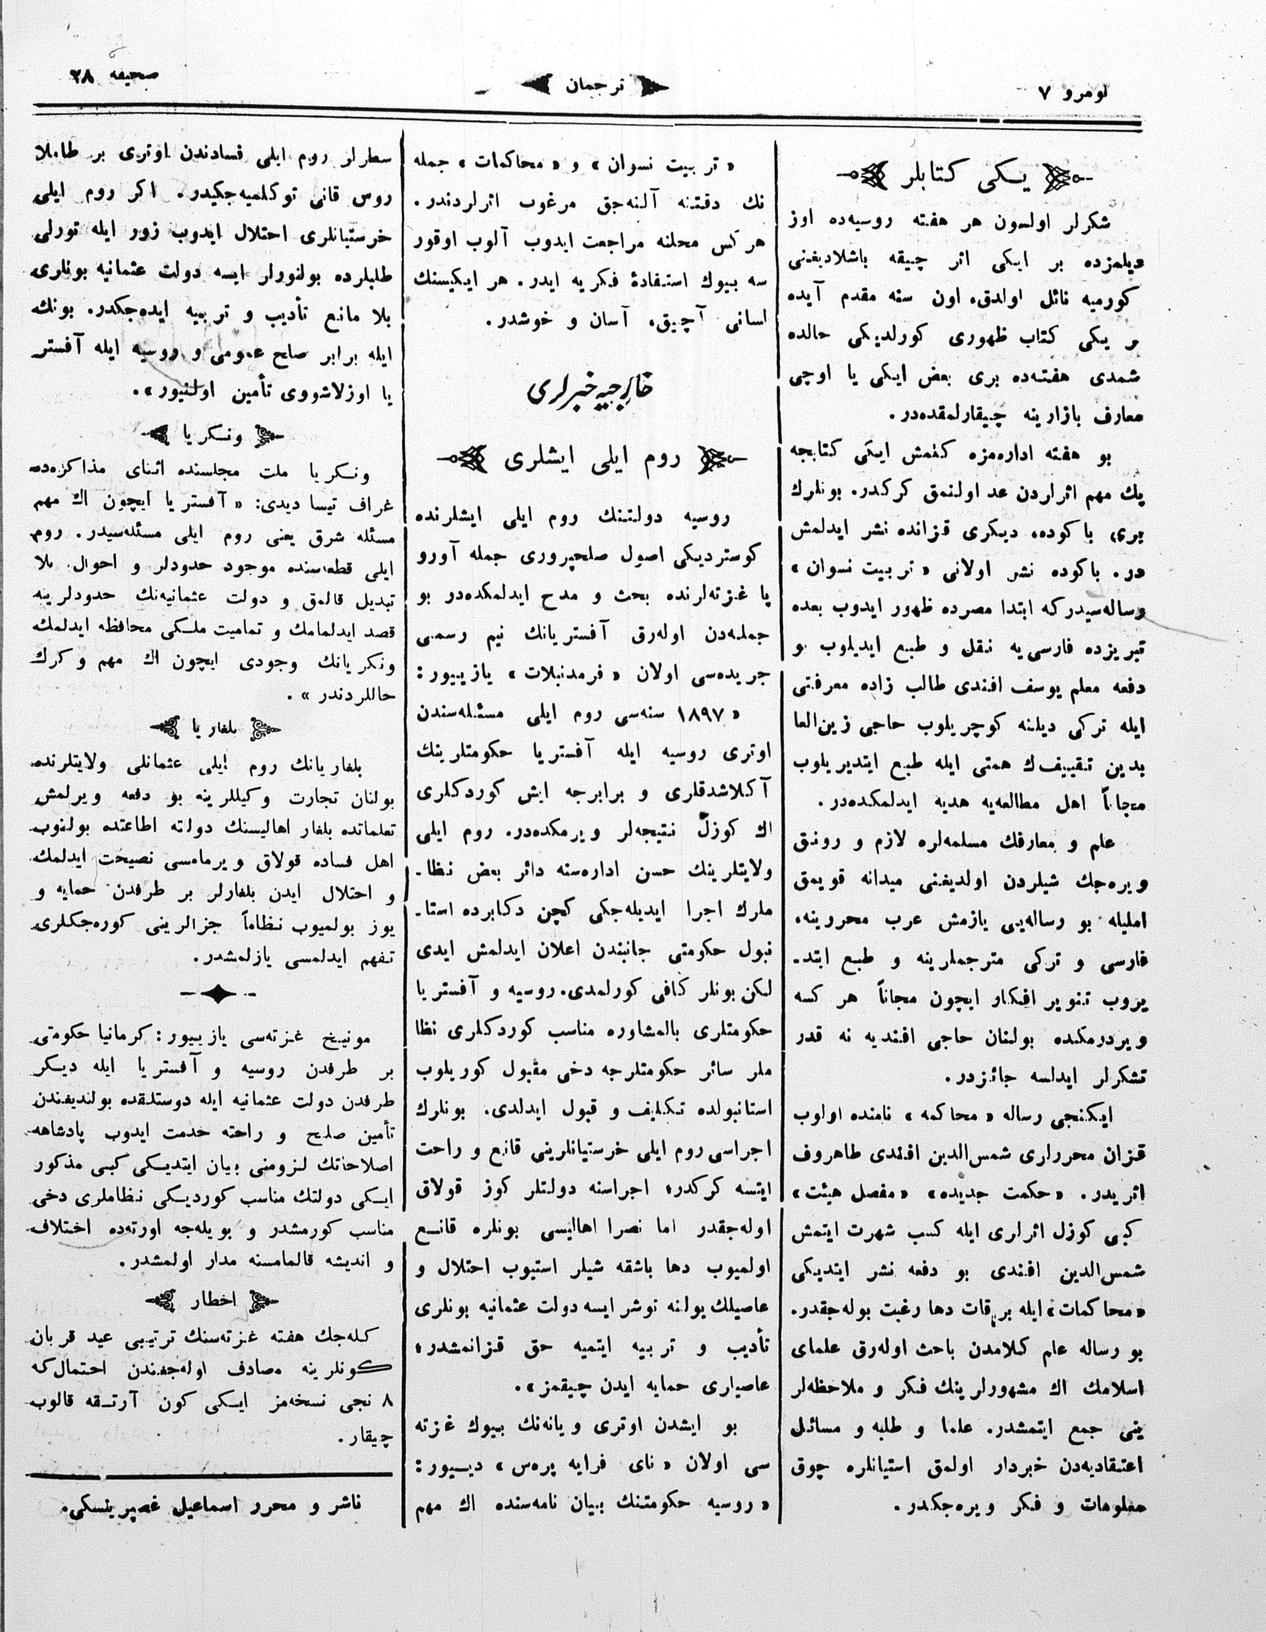 نومرو ۷
ترجمان
صحیفه ۲۸
یـكی كتابلر
شكرلر اولسون هر هفته روسیه‌ده اوز
دیلمزده بر ایكی اثر چیقه باشلادیغنی
كورمیه نائل اولدق. اون سنه مقدم آیده
بر یكی كتاب ظهوری كورلدیكی حالده
شمدی هفته‌ده بری بعض ایكی یا اوچی
معارف بازارینه چیقارلمقده‌در.
بو هفته اداره‌مزه كلمش ایكی كتابجه
پك مهم اثرلردن عد اولنمق كركدر. بونلرك
بری باكوده، دیكری قزانده نشر ایدلمش
در. باكوده نشر اولانی « تربیت نسوان »
رساله‌سیدركه ابتدا مصرده ظهور ایدوب بعده
تبریزده فارسی‌یه نقل و طبع ایدیلوب بو
دفعه معلم یوسف افندی طالب زاده معرفتی
ایله تركی دیلنه كوچریلوب حاجی زین‌العا
بدین تقییف‌ك همتی ایله طبع ایتدیریلوب
مجاناً اهل مطالعه‌یه هدیه ایدلمكده‌در.
علم و معارفك مسلمه‌لره لازم و رونق
ویره‌جك شیلردن اولدیغنی میدانه قویمق
املیله بو رساله‌یی یازمش عرب محررینه،
فارسی و تركی مترجملرینه و طبع ایتد‌ـ
یروب تنویر افكار ایچون مجاناً هر كسه
ویردرمكده بولنان حاجی افندیه نه قدر
تشكرلر ایدلسه جائزدر.
ایكنجی رساله « محاكمه » نامنده اولوب
قزان محررلری شمس‌الدین افندی طاهروف
اثریدر. « حكمت جدیده » « مفصل هیئت »
كبی كوزل اثرلری ایله كسب شهرت ایتمش
شمس‌الدین افندی بو دفعه نشر ایتدیكی
«محاكمات» ایله برقات دها رغبت بوله‌جقدر.
بو رساله علم كلامدن باحث اوله‌رق علمای
اسلامك اك مشهورلرینك فكر و ملاحظه‌لر
ینی جمع ایتمشدر. علما و طلبه و مسائل
اعتقادیه‌دن خبردار اولمق استیانلره چوق
معلومات و فكر ویره‌جكدر.
« تربیت نسوان » و « محاكمات » جمله
نك دقتنه آلنه‌جق مرغوب اثرلردندر.
هر كس محلنه مراجعت ایدوب آلوب اوقور
سه بیوك استفادهٔ فكریه ایدر. هر ایكیسنك
لسانی آچیق، آسان و خوشدر.
خارجیه خبرلری
روم ایلی ایشلری
روسیه دولتنك روم ایلی ایشلرنده
كوستردیكی اصول صلحپروری جمله آورو
پا غزته‌لرنده بحث و مدح ایدلمكده‌در بو
جمله‌دن اوله‌رق آفستریانك نیم رسمی
جریده‌سی اولان « فرمدنبلات » یازییور:
« ۱۸۹۷ سنه‌سی روم ایلی مسئله‌سندن
اوتری روسیه ایله آفستریا حكومتلرینك
آكلاشدقلری و برابرجه ایش كوردكلری
اك كوزل نتیجه‌لر ویرمكده‌در. روم ایلی
ولایتلرینك حسن اداره‌سنه دائر بعض نظاـ
ملرك اجرا ایدیله‌جكی كچن دكابرده استاـ
نبول حكومتی جانبندن اعلان ایدلمش ایدی
لكن بونلر كافی كورلمدی. روسیه و آفستریا
حكومتلری بالمشاوره مناسب كوردكلری نظا
ملر سائر حكومتلرجه دخی مقبول كوریلوب
استانبولده تكلیف و قبول ایدلدی. بونلرك
اجراسی روم ایلی خرستیانلرینی قانع و راحت
ایتسه كركدر؛ اجراسنه دولتلر كوز قولاق
اوله‌جقدر اما نصرا اهالیسی بونلره قانـع
اولمیوب دها باشقه شیلر استیوب احتلال و
عاصیلك یولنه توشر ایسه دولت عثمانیه بونلری
تأدیب و تربیه ایتمیه حق قزانمشدر؛
عاصیلری حمایه ایدن چیقمز».
بو ایشدن اوتری ویانه‌نك بیوك غزته
سی اولان « نای فرایه پره‌س » دییور:
« روسیه حكومتنك بیان نامه‌سنده اك مهم
سطرلر روم ایلی فسادندن اوتری بر طامله
روس قانی توكلمیه‌جكیدر. اكر روم ایلی
خرستیانلری احتلال ایدوب زور ایله تورلی
طلبلرده بولنوولر ایسه دولت عثمانیه بونلری
بلا مانع تأدیب و تربیه ایده‌جكدر. بونك
ایله برابر صلح عمومی و روسیه ایله آفستر
یا اوزلاشووی تأمین اولنیور».
ونـكریا
ونـكریا ملت مجلسنده اثنای مذاكره‌ده
غراف تیسا دیدی: « آفستریا ایچون اك مهم
مسئله شرق یعنی روم ایلی مسئله‌سیدر. روم
ایلی قطعه‌سنده موجود حدودلر و احوال بلا
تبدیل قالمق و دولت عثمانیه‌نك حدودلرینه
قصد ایدلمامك و تمامیت ملـكی محافظه ایدلمك
ونكریانك وجودی ایچون اك مهم و كرك
حاللردندر ».
بلغاریا
بلغاریانك روم ایلی عثمانلی ولایتلرنده
بولنان تجارت وكیللرینه بو دفعه ویرلمش
تعلماتده بلغار اهالیسنك دولته اطاعتده بولنوب
اهل فساده قولاق ویرمامسی نصیحت ایدلمك
و احتلال ایدن بلغارلر بر طرفدن حمایه و
یوز بولمیوب نظاماً جزالرینی كوره‌جكلری
تفهم ایدلمسی یازلمشدر.
مونیخ غزته‌سی یازییور: كرمانیا حكومتی
بر طرفدن روسیه و آفستریا ایله دیـكر
طرفدن دولت عثمانیه ایله دوستلقده بولندیغندن
تأمین صلح و راحته خدمت ایدوب پادشاهه
اصلاحاتك لزومنی بیان ایتدیـكی كبی مذكور
ایـكی دولتك مناسب كوردیـكی نظاملری دخی
مناسب كورمشدر و بویله‌جه اورته‌ده اختلاف
و اندیشه قالمامسنه مدار اولمشدر.
اخطار
كله‌جك هفته غزته‌سنك ترتیبی عید قربان
كونلرینه مصادف اوله‌جغندن احتمال‌كه
۸ نجی نسخه‌مز ایـكی كون آرتـقه قالوب
چیقار.
ناشر و محرر اسماعیل غصپرینسكی.